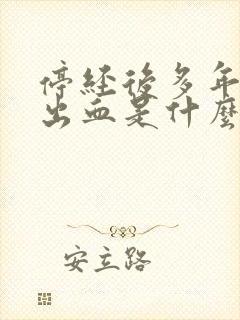 停经後多年
出血是什麼
安立路